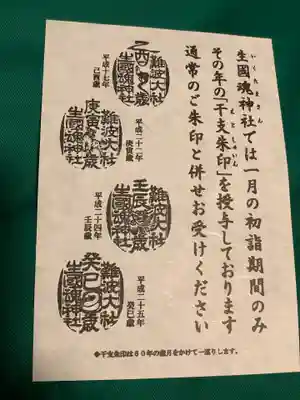 いくたまさん
生國魂神社では一月の初詣期間のみ
えとしゅいん
その年の「干支朱印」を授与しております
通常のご朱印と併せお受けください
難波大社
乙酉の歳
生國魂神社
平成十七年
酉歳
難波大社
庚寅の歳
生國魂神社
平成二十二年
庚寅歳
難波大社
壬辰の歳
生國魂神社
平成二十四年
壬辰歳
難波大社
癸巳の歳
生國魂神社
平成二十五年
癸巳歳
◆干支朱印は60年の歳月をかけて一巡りします。